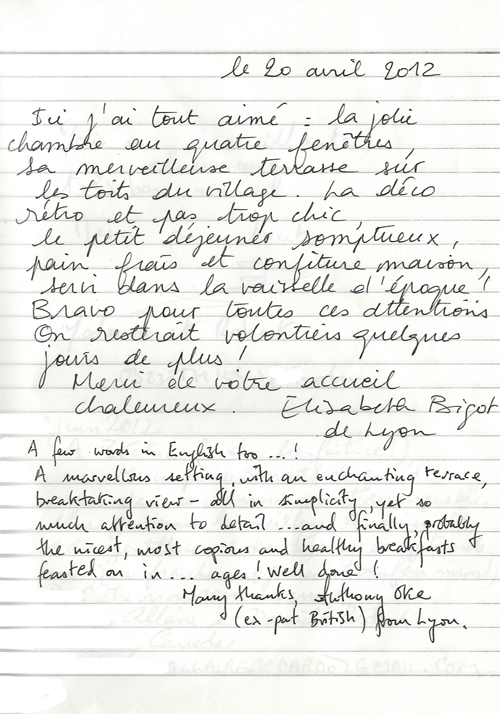 le 20 avril 2012
Ici j'ai tout aimé : la jolie
chambre au quatre fenêtres,
sa merveilleuse terrasse sur
les toits du village. La déco
rétro et pas trop chic,
le petit déjeuner somptueux,
pain frais et confiture maison,
servi dans la vaisselle d'époque !
Bravo pour toutes ces attentions
On resterait volontiers quelques
jours de plus !
Merci de vôtre accueil
chaleureux. Elisabeth Bigot
de Lyon
A few words in English too ...!
A marvellous setting, with an enchanting terrace,
breaktaking view – all in simplicity, yet so
much attention to detail ... and finally, probably
the nicest, most copious and healthy breakfasts
feasted on in ... ages ! Well done !
Many thanks, Anthony Oke
(ex-pat British) from Lyon.